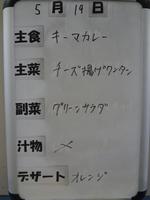 5月19日
主食 キーマカレー
主菜 チーズ揚げワンタン
副菜 グリーンサラダ
汁物 ×
デザート オレンジ